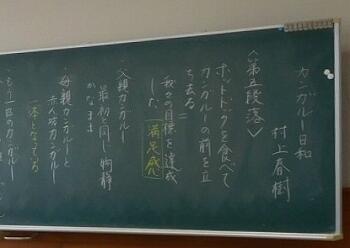 カンガルー日和
村上春樹
<第五段落>
ホットドクを食べて
カンガルーの前を立
ち去る
=
我々の目標を達成
した 満足感
父親カンガルー
最初と同じ
かなまま
母親カンガルーと
赤ん坊カンガルー
一体となっている
もう一匹のカンガルー